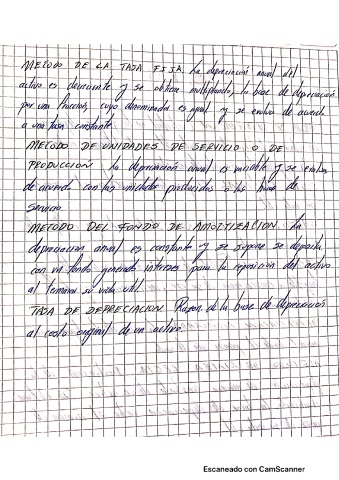 METODO DE LA TASA FIJA. La depreciación anual del
activo es decreciente y se obtiene multiplicando, la base de depreciación
por una fracción, cuyo denominador es igual y se evalua de acuerdo
a una tasa constante.
METODO DE UNIDADES DE SERVICIO O DE
PRODUCCION. La depreciación anual es variable y se evalua
de acuerdo con las unidades producidas o las horas de
servicio
METODO DEL FONDO DE AMORTIZACION. La
depreciación anual es constante y se supone se deposita
con un fondo generando intereses para la reposición del activo
al terminar su vida util.
TASA DE DEPRECIACION. Razon de la base de depreciación
al costo original de un activo.
Escaneado con CamScanner